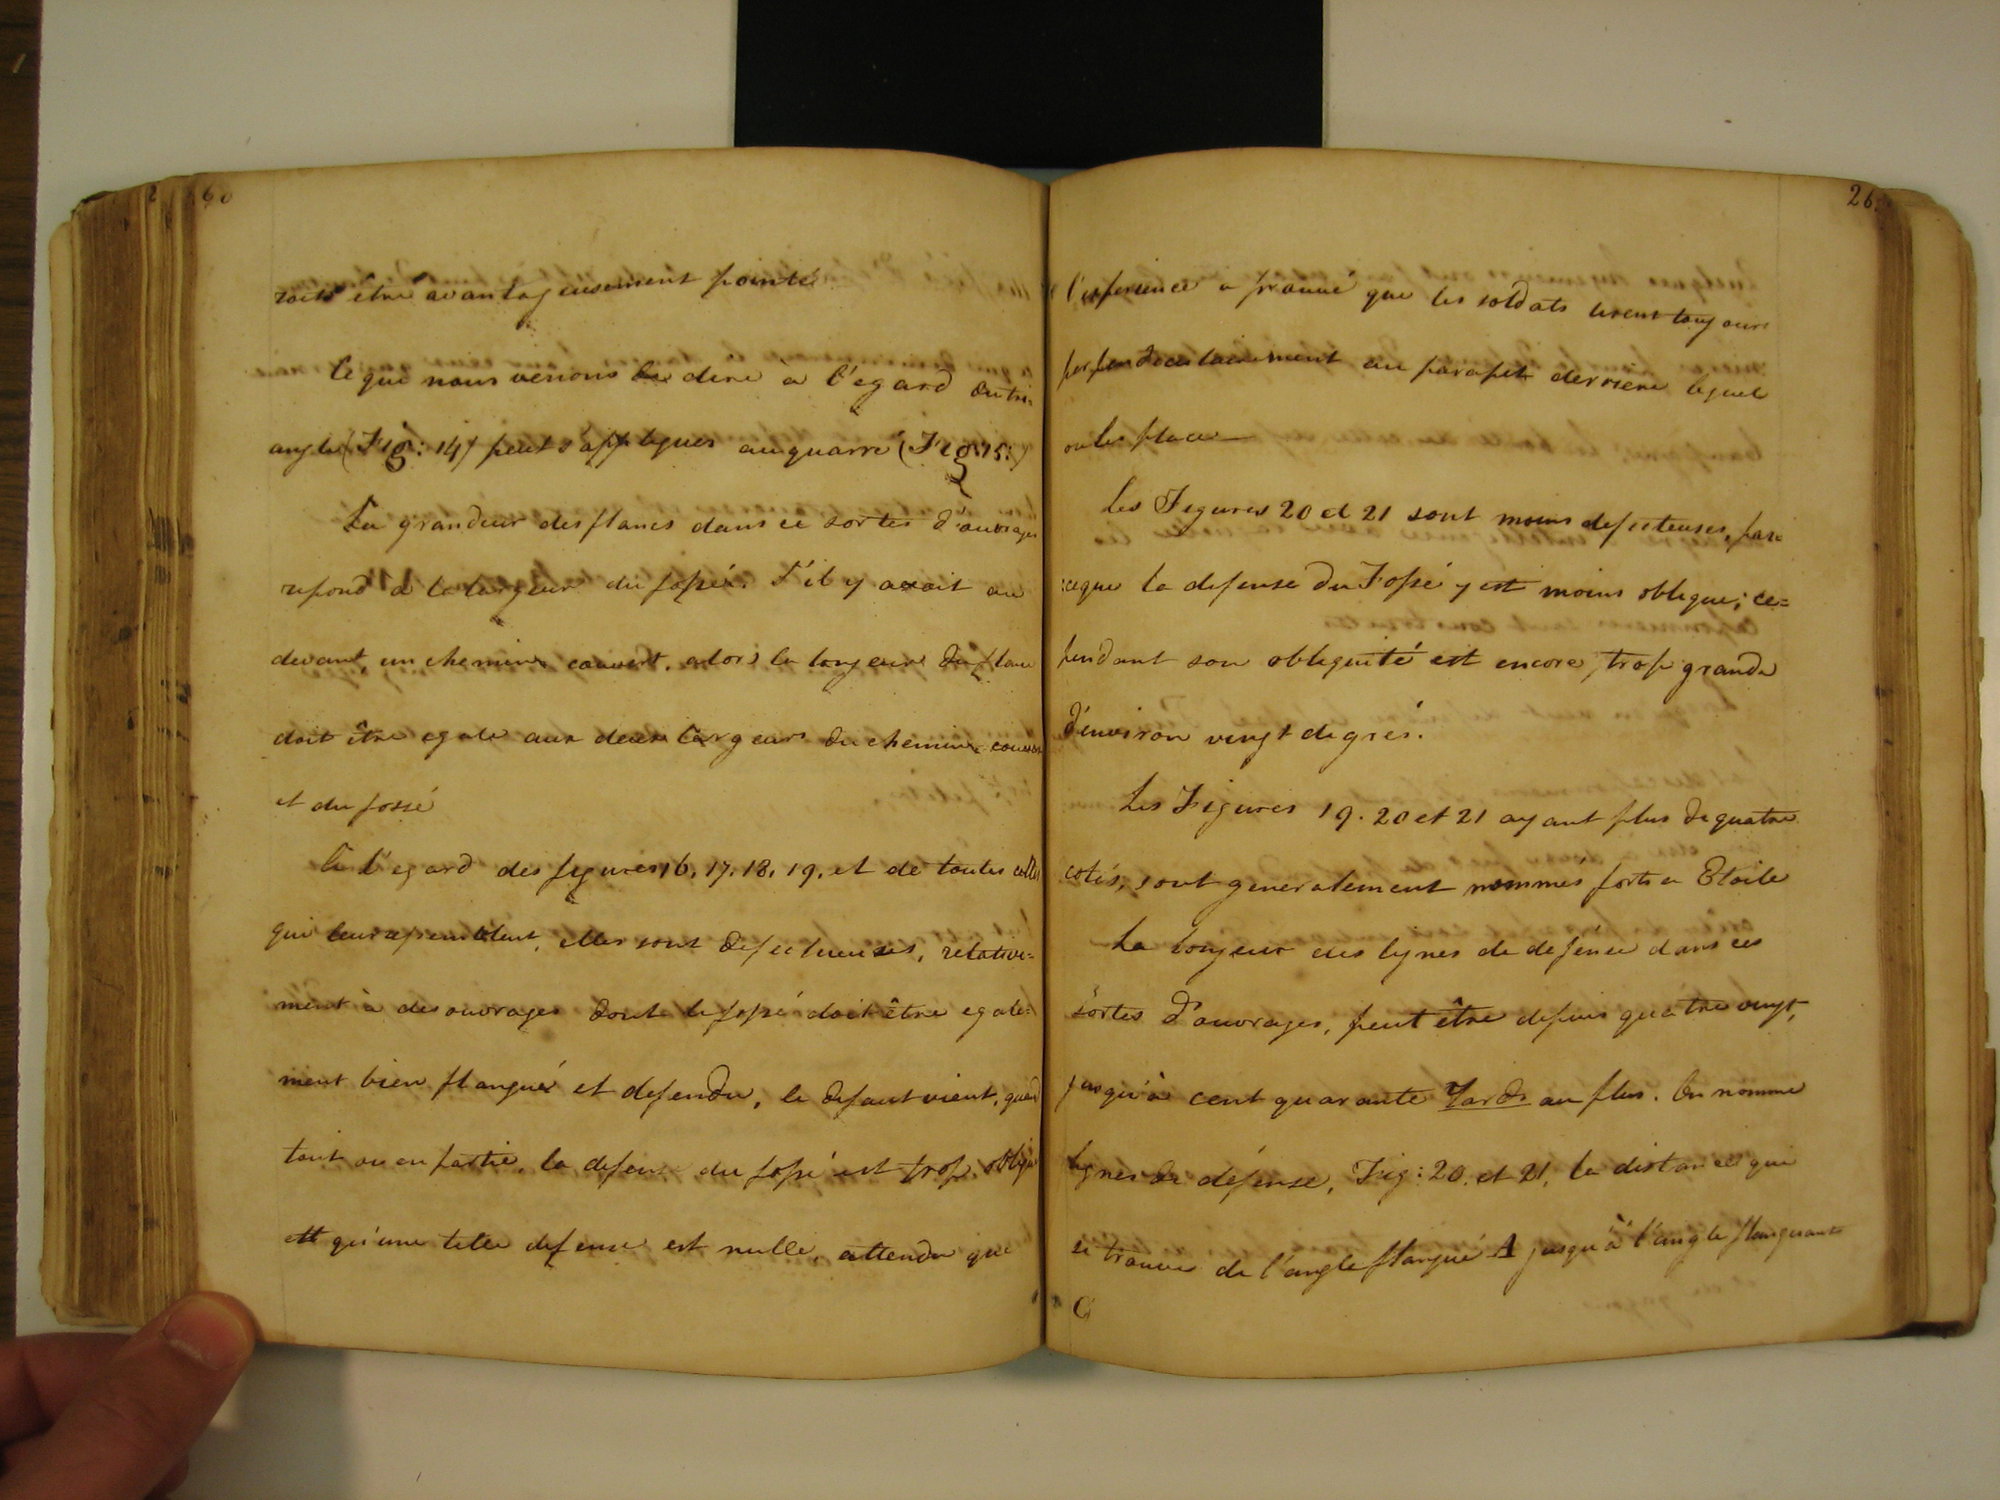 260
roit être avantageusement pointé.
Ce que nous venons de dire a l'egard du tri-
angle (Fig: 14) peut s'appliquer au quarré (Fig: 15.)
La grandeur des flancs dans ce sortes d'ouvrages
repond a la largeur du fossé. S'il y avait au
devant, un chemin couvert, alors la longeur du flanc
doit être egale aux deux largeurs du chemin couvert
et du fossé
A l'egard des figures 16. 17. 18. 19. et de toutes celles
qui leur resemblent, elles sont defectueuses, relative=
ment à des ouvrages dont le fossé doit être egale=
ment bien flanqué et defendu, le defaut vient, quand
tout ou en partie, la defense du fossé est trop oblique
et qu'une telle defense est nulle, attendu que
26
l'experience a prouvé que les soldats tirent toujours
perpendiculairement au parapet derriere lequel
on les place
Les Figures 20 et 21 sont moins defecteuses, par=
:ceque la defense du Fossé y est moins oblique; ce=
pendant son obliquité est encore, trop grande
d'environ vingt degrés.
Les Figures 19. 20 et 21 ayant plus de quatre
cotés, sont generalement nommés forts a Etoile
La longeur des lignes de defense dans ces
sortes d'ouvrages, peut être depuis quatre vingt,
jusqu'à cent quarante Yards au plus. On nomme
lignes de défense, Fig: 20. et 21. la distance qui
se trouve de l'angle flanqué A jusqu'à l'angle flanquant
C